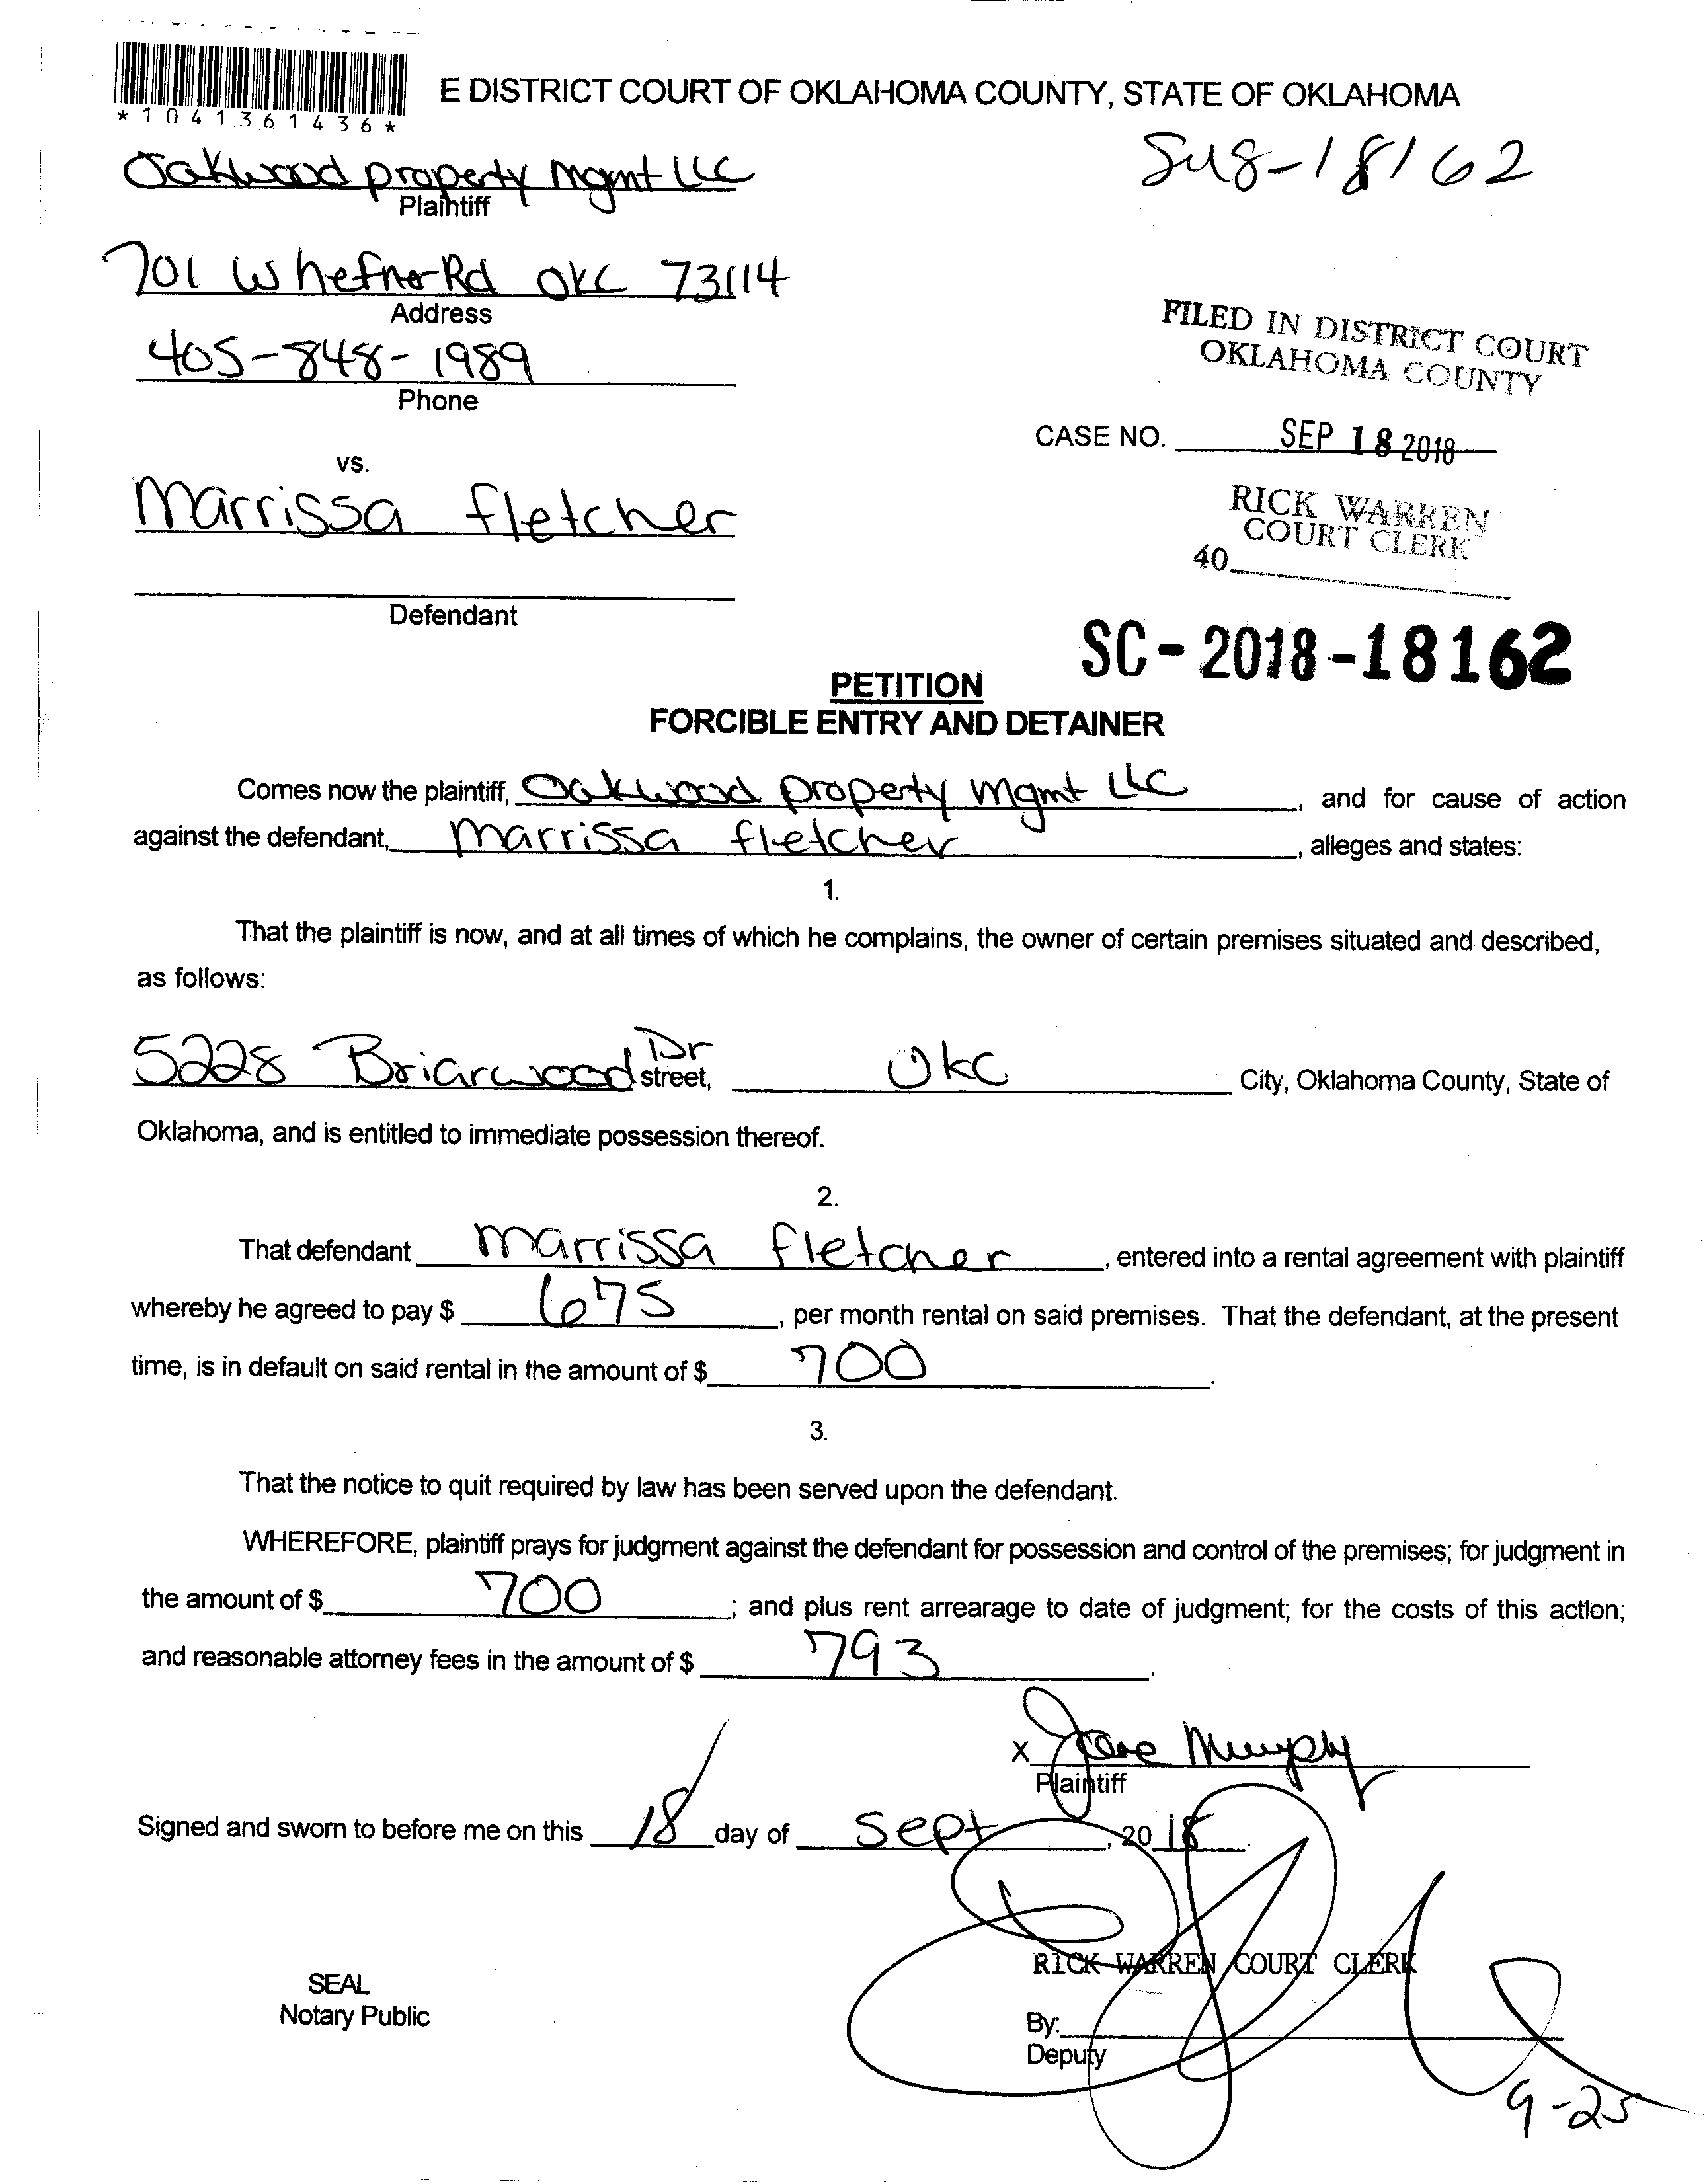 E DISTRICT COURT OF OKLAHOMA COUNTY, STATE OF OKLAHOMA
*1041361436*
Oakwood property mgmt LLC
Plaintiff
18162
701 W hefner Rd OKC 73114
Address
405-848-1989
Phone
FILED IN DISTRICT COURT
OKLAHOMA COUNTY
CASE NO. SEP 18 2018
vs.
Marrissa fletcher
RICK WARREN
COURT CLERK
40
Defendant
SC-2018-18162
PETITION
FORCIBLE ENTRY AND DETAINER
Comes now the plaintiff, Oakwood property mgmt LLC, and for cause of action
against the defendant, marrissa fletcher, alleges and states:
1.
That the plaintiff is now, and at all times of which he complains, the owner of certain premises situated and described,
as follows:
5228 Briarwood Dr street, OKC City, Oklahoma County, State of
Oklahoma, and is entitled to immediate possession thereof.
2.
That defendant marrissa fletcher, entered into a rental agreement with plaintiff
whereby he agreed to pay $ 675, per month rental on said premises. That the defendant, at the present
time, is in default on said rental in the amount of $ 700.
3.
That the notice to quit required by law has been served upon the defendant.
WHEREFORE, plaintiff prays for judgment against the defendant for possession and control of the premises; for judgment in
the amount of $ 700; and plus rent arrearage to date of judgment; for the costs of this action;
and reasonable attorney fees in the amount of $ 793.
x Murphy
Plaintiff
Signed and sworn to before me on this 18 day of Sept, 2018.
RICK WARREN COURT CLERK
SEAL
Notary Public
By:
Deputy
9-25